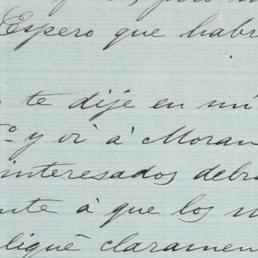 Espero que habr
te dije en mi
y vi à Moran
interesados debi
nte à que los
liqué claramen